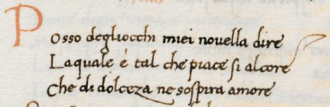 Posso degliocchi miei nouella dire
Laquale é tal che piace si alcore
Che di dolceza ne sospira amore